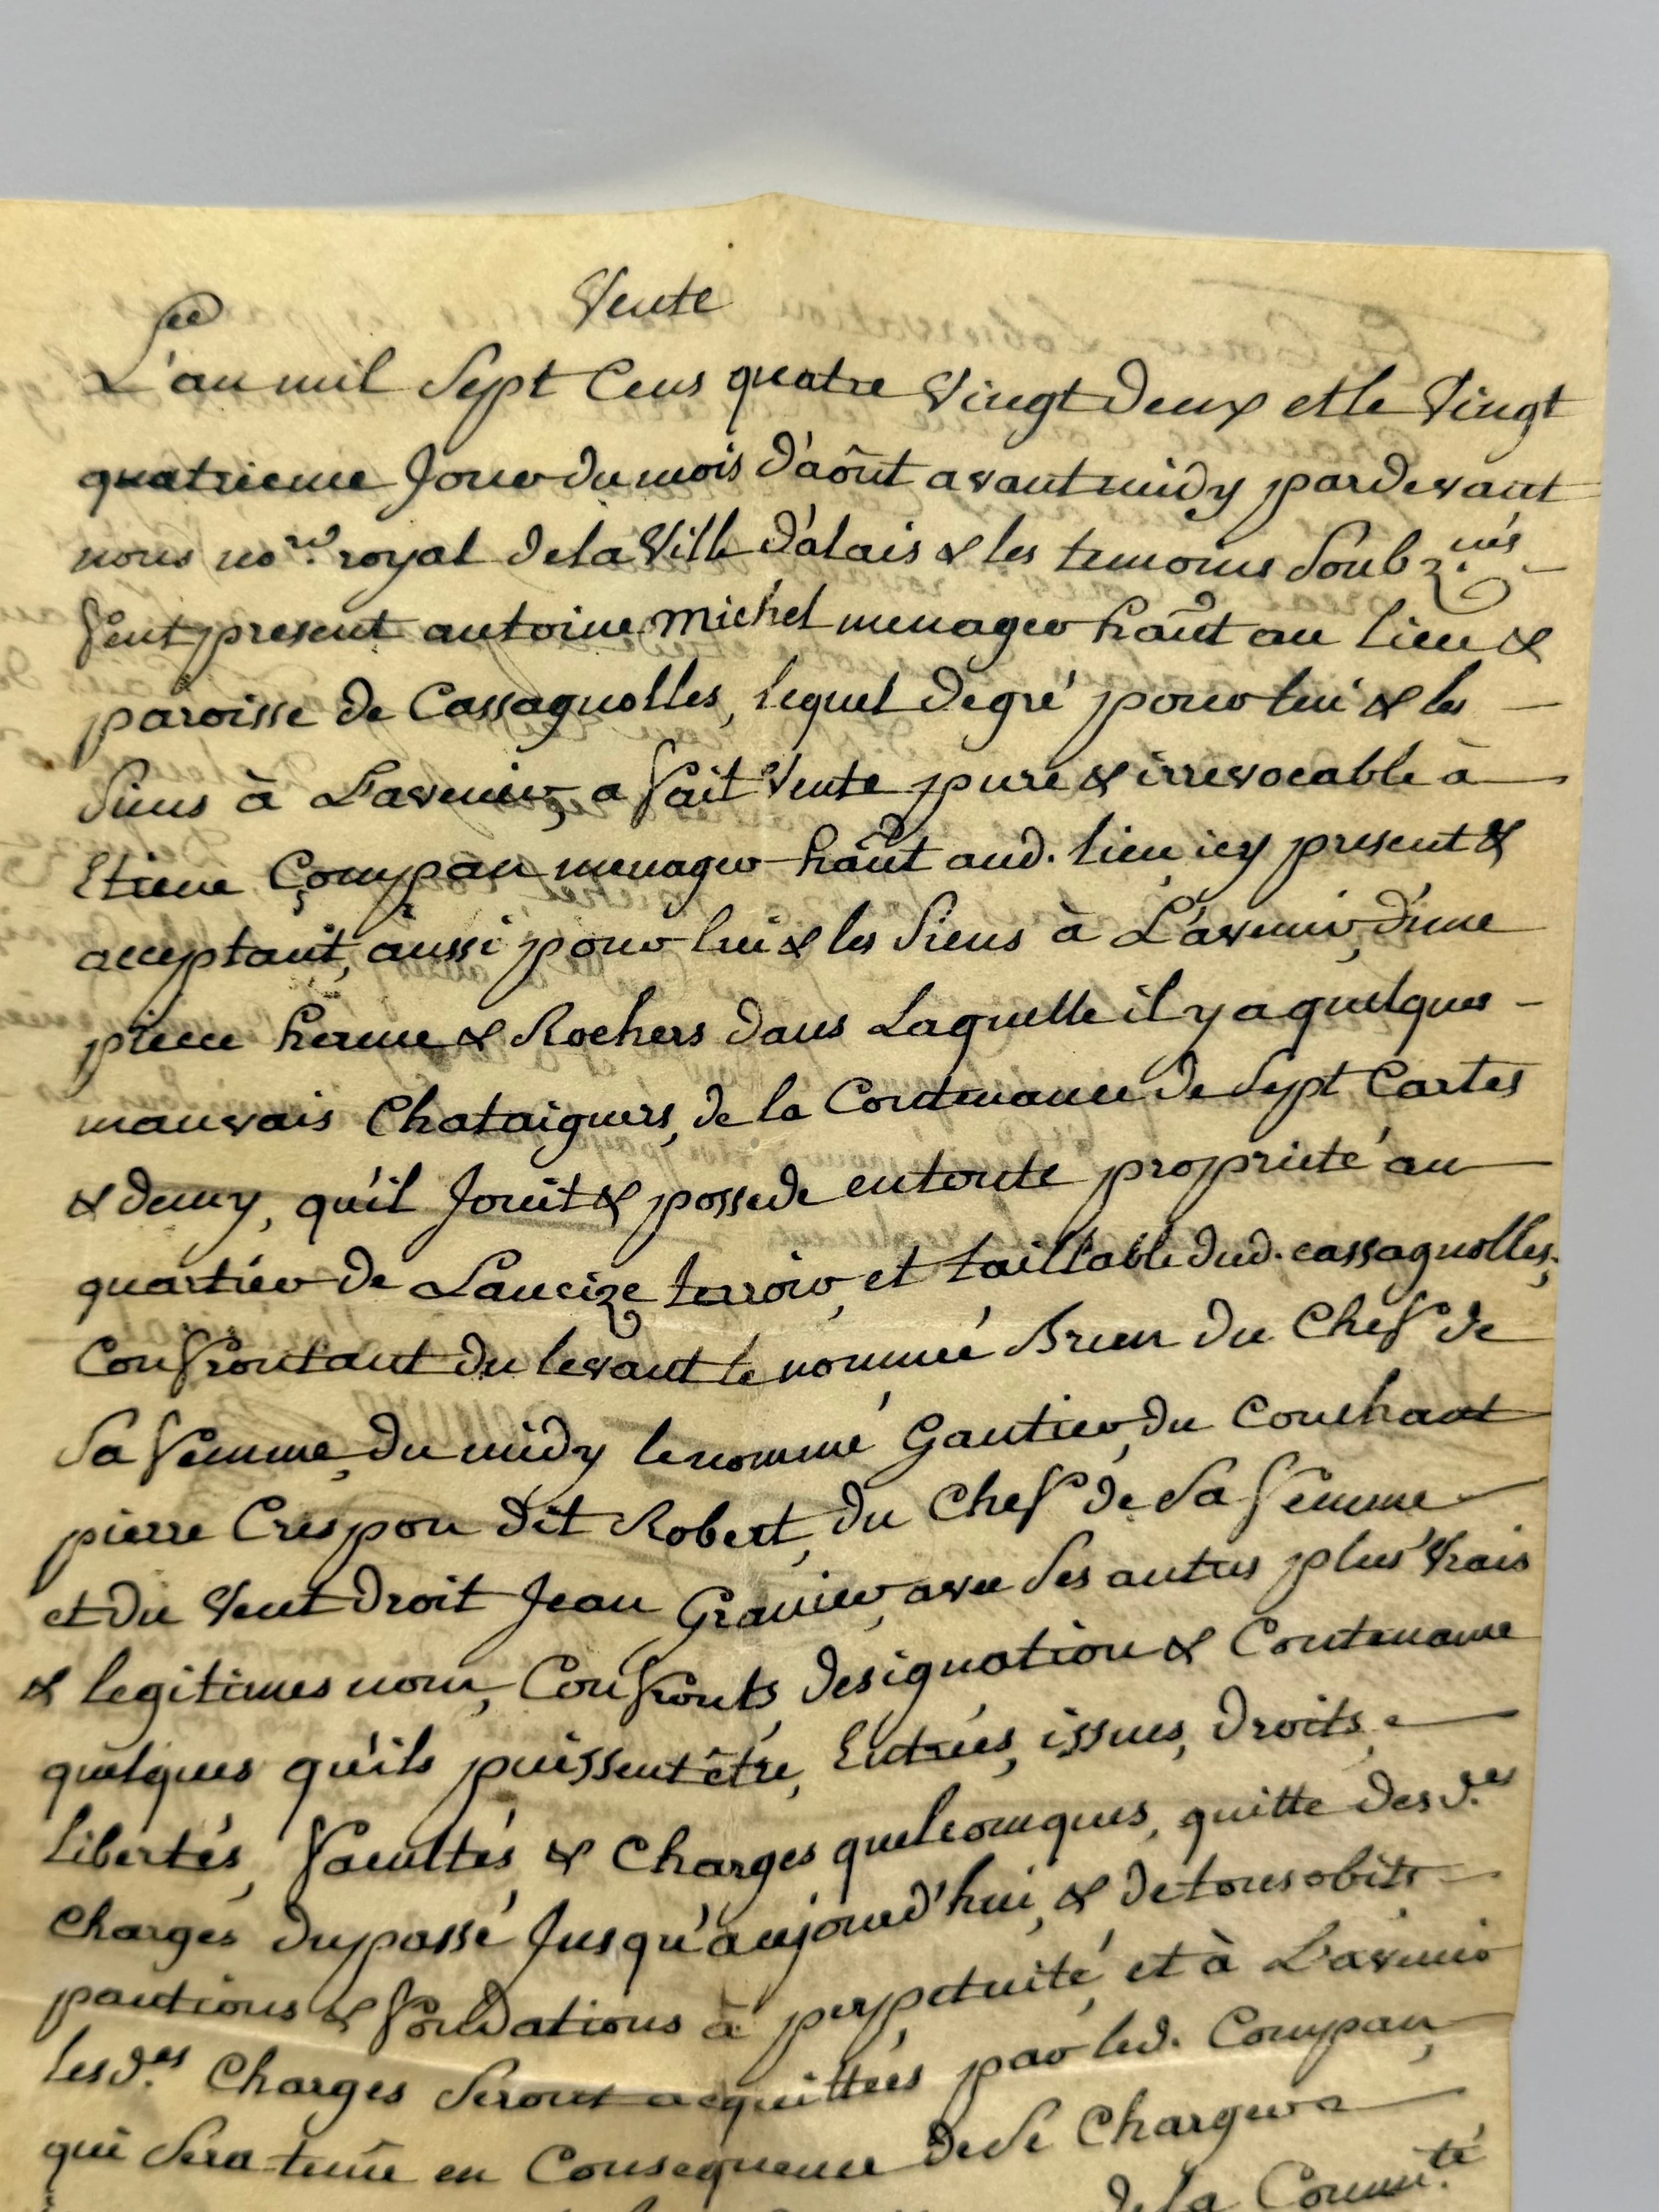 Vente
L'an mil Sept Cens quatre Vingt Deux et le Vingt
quatrieme Jour du mois D'aôut avant midy pardevant
nous no.re royal dela Ville D'alais & les temoins Soubz.nés
feut present antoine michel menager haût au lieu &
paroisse de Cassagnolles, lequel De gré pour lui & les
Siens à L'avenir, a fait Vente pure & irrevocable à
Etiene Compan menager haût aud. lieu icy present &
acceptant, aussi pour lui & les Siens à L'avenir, d'une
piece herme & Rochers dans Laquelle il y a quelques
mauvais Chataigners, de la Contenance de Sept Cartes
& demy, qu'il Jouit & possede en toute proprieté au
quartier de Laucize terroir, et taillable dud. cassagnolles,
Confrontant du levant le nommé Brun du Chef de
Sa femme, du midy le nommé Gautier, du Couchant
pierre Crespon dit Robert, du Chef de Sa femme
et du Vent droit Jean Granier, avec Ses autres plus Vrais
& legitimes nom, Confronts, designation & Contenance
quelques qu'ils puissent être, Entrées, issues, Droits,
Libertés, facultés & Charges quelconques, quitte des d.es
Charges du passé Jusqu'aujourd'hui, & de tous obits
pantions & fondations à perpetuité, et à L'avenir
les d.es Charges Seront acquittées par led. Compan,
qui Sera tenu en Consequence de Se Charger
de la Commu.té